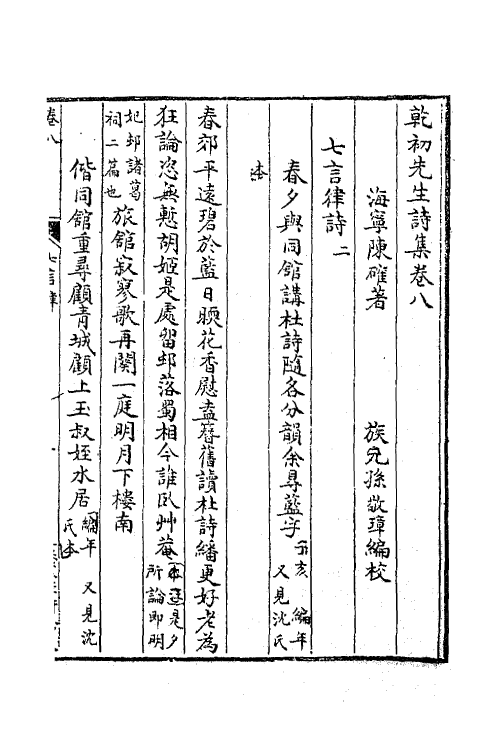 乾初先生詩集卷八
海寧陳確著 族玄孫敬璋編校
七言律詩 二
春夕與同館講杜詩隨各分韻余得藍字 丁亥 編年 又見沈氏
本
春郊平遠碧於藍日暖花香慰盍簪舊讀杜詩繙更好老為
狂論恣無慙胡姬是處留邨落蜀相今誰臥艸菴 本註是夕所論即明
妃邨諸葛祠二篇也 旅館寂寥歌再闋一庭明月下樓南
偕同館重尋顧青城顧上玉叔姪水居 編年 又見沈氏本
卷八 七言律